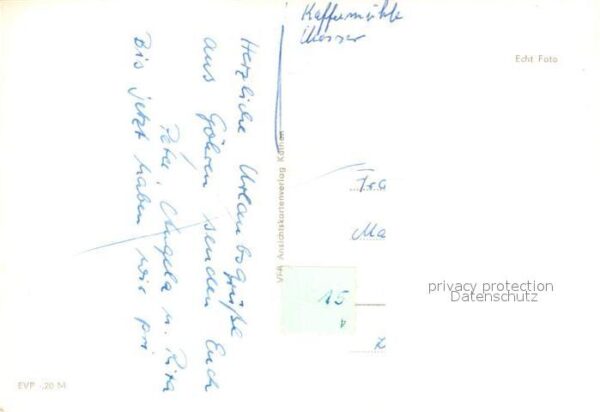 Kaffeemühle
Messer
Echt Foto
Herzliche Urlaubsgrüße
aus Göhren senden Euch
Peter, Angela u. Rita
Bis jetzt haben wir pri
VEB Ansichtskartenverlag Köthen
Fra
Ma
15
4
privacy protection
Datenschutz
EVP -,20 M